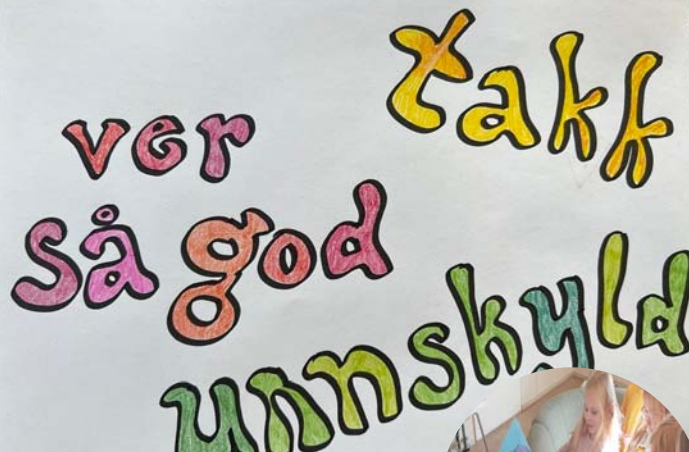 takk
ver
så god
unnskyld